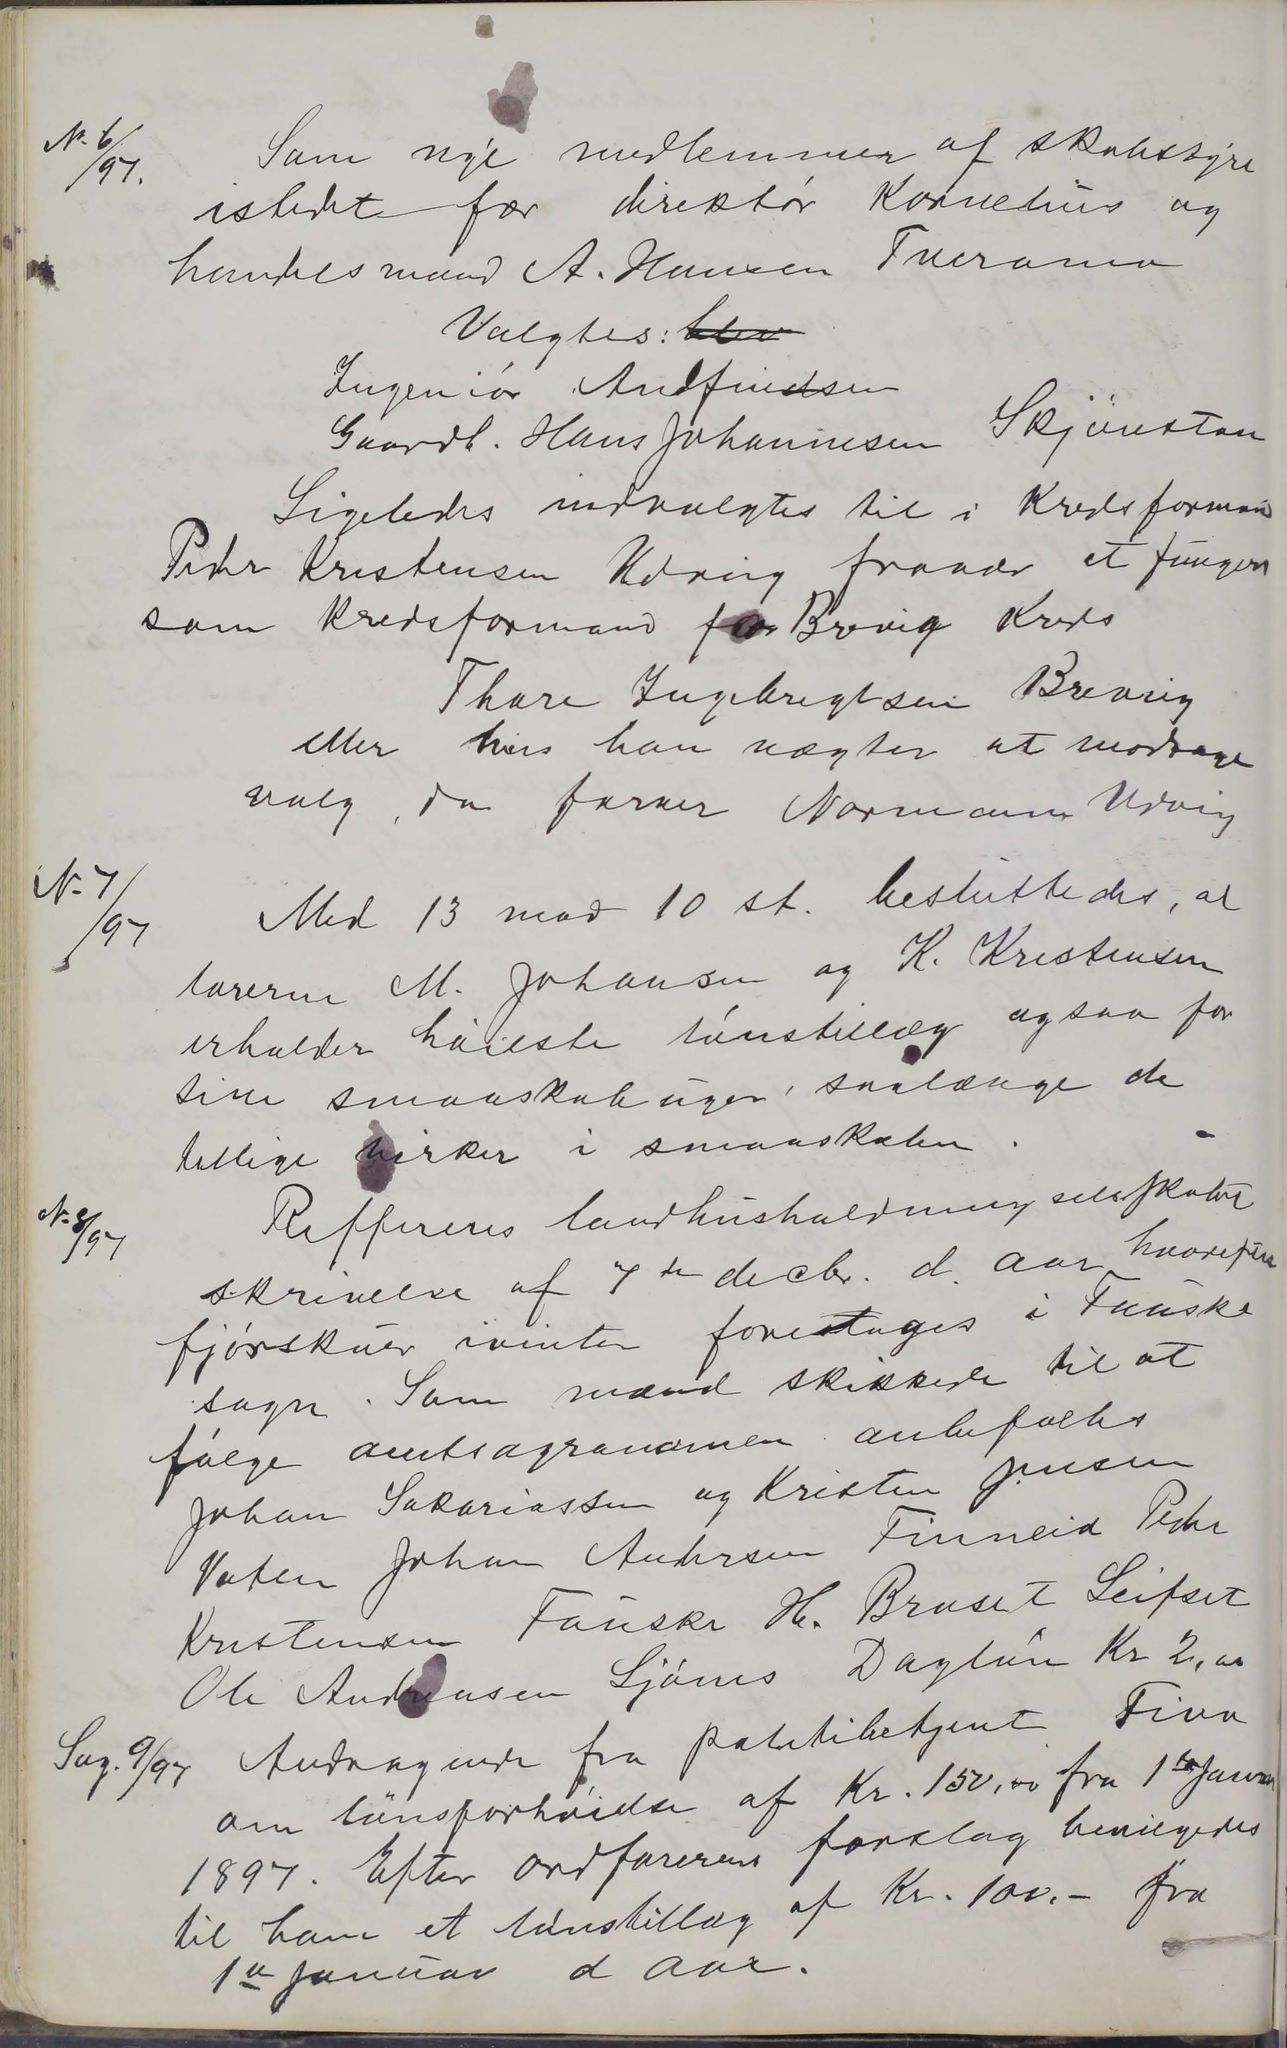 N. 6/97. Som nye medlemmer af skolestyre
istedet for direktør Kornelius og
handelsmand A. Hansen Tveraamo
Valgtes: blev
Ingeniør Andfindsen
Gaardb. Hans Johannesen Skjønstaa
Ligeledes indvalgtes til i Kredsformand
Peder Kristensen Udvig fravær at fungere
som Kredsformand for Brevig Kreds
Thore Ingebregtsen Brevig
eller hvis han nægter at modtage
valg, da farver Normann Udvig
N. 7/97 Med 13 mod 10 st. besluttedes, at
lærerne M. Johansen og K. Kristensen
erholder høieste lønstillæg ogsaa for
sine smaaskoleuger, saalænge de
tillige virker i smaaskolen.
N. 8/97 Reffereres landhusholdningsselskabets
skrivelse af 7de decbr. d. aar hvorefter
fjøsskuer ivinter foretages i Fauske
sogn. Som mænd skikkede til at
følge amtsagronomen anbefales
Johan Sakariassen og Kristen Jensen
Vatten Johan Andersen Finneid Peder
Kristensen Fauske H. Bruset Leifset
Ole Andreasen Ljønes Dagløn Kr 2,00
Sag. 9/97 Andragende fra politibetjent Finn
om lønsforhøidse af Kr. 150,00 fra 1ste Januar
1897. Efter ordførerens forslag bevilgedes
til ham et lønstillæg af Kr. 100.- fra
1ste Januar d aar.